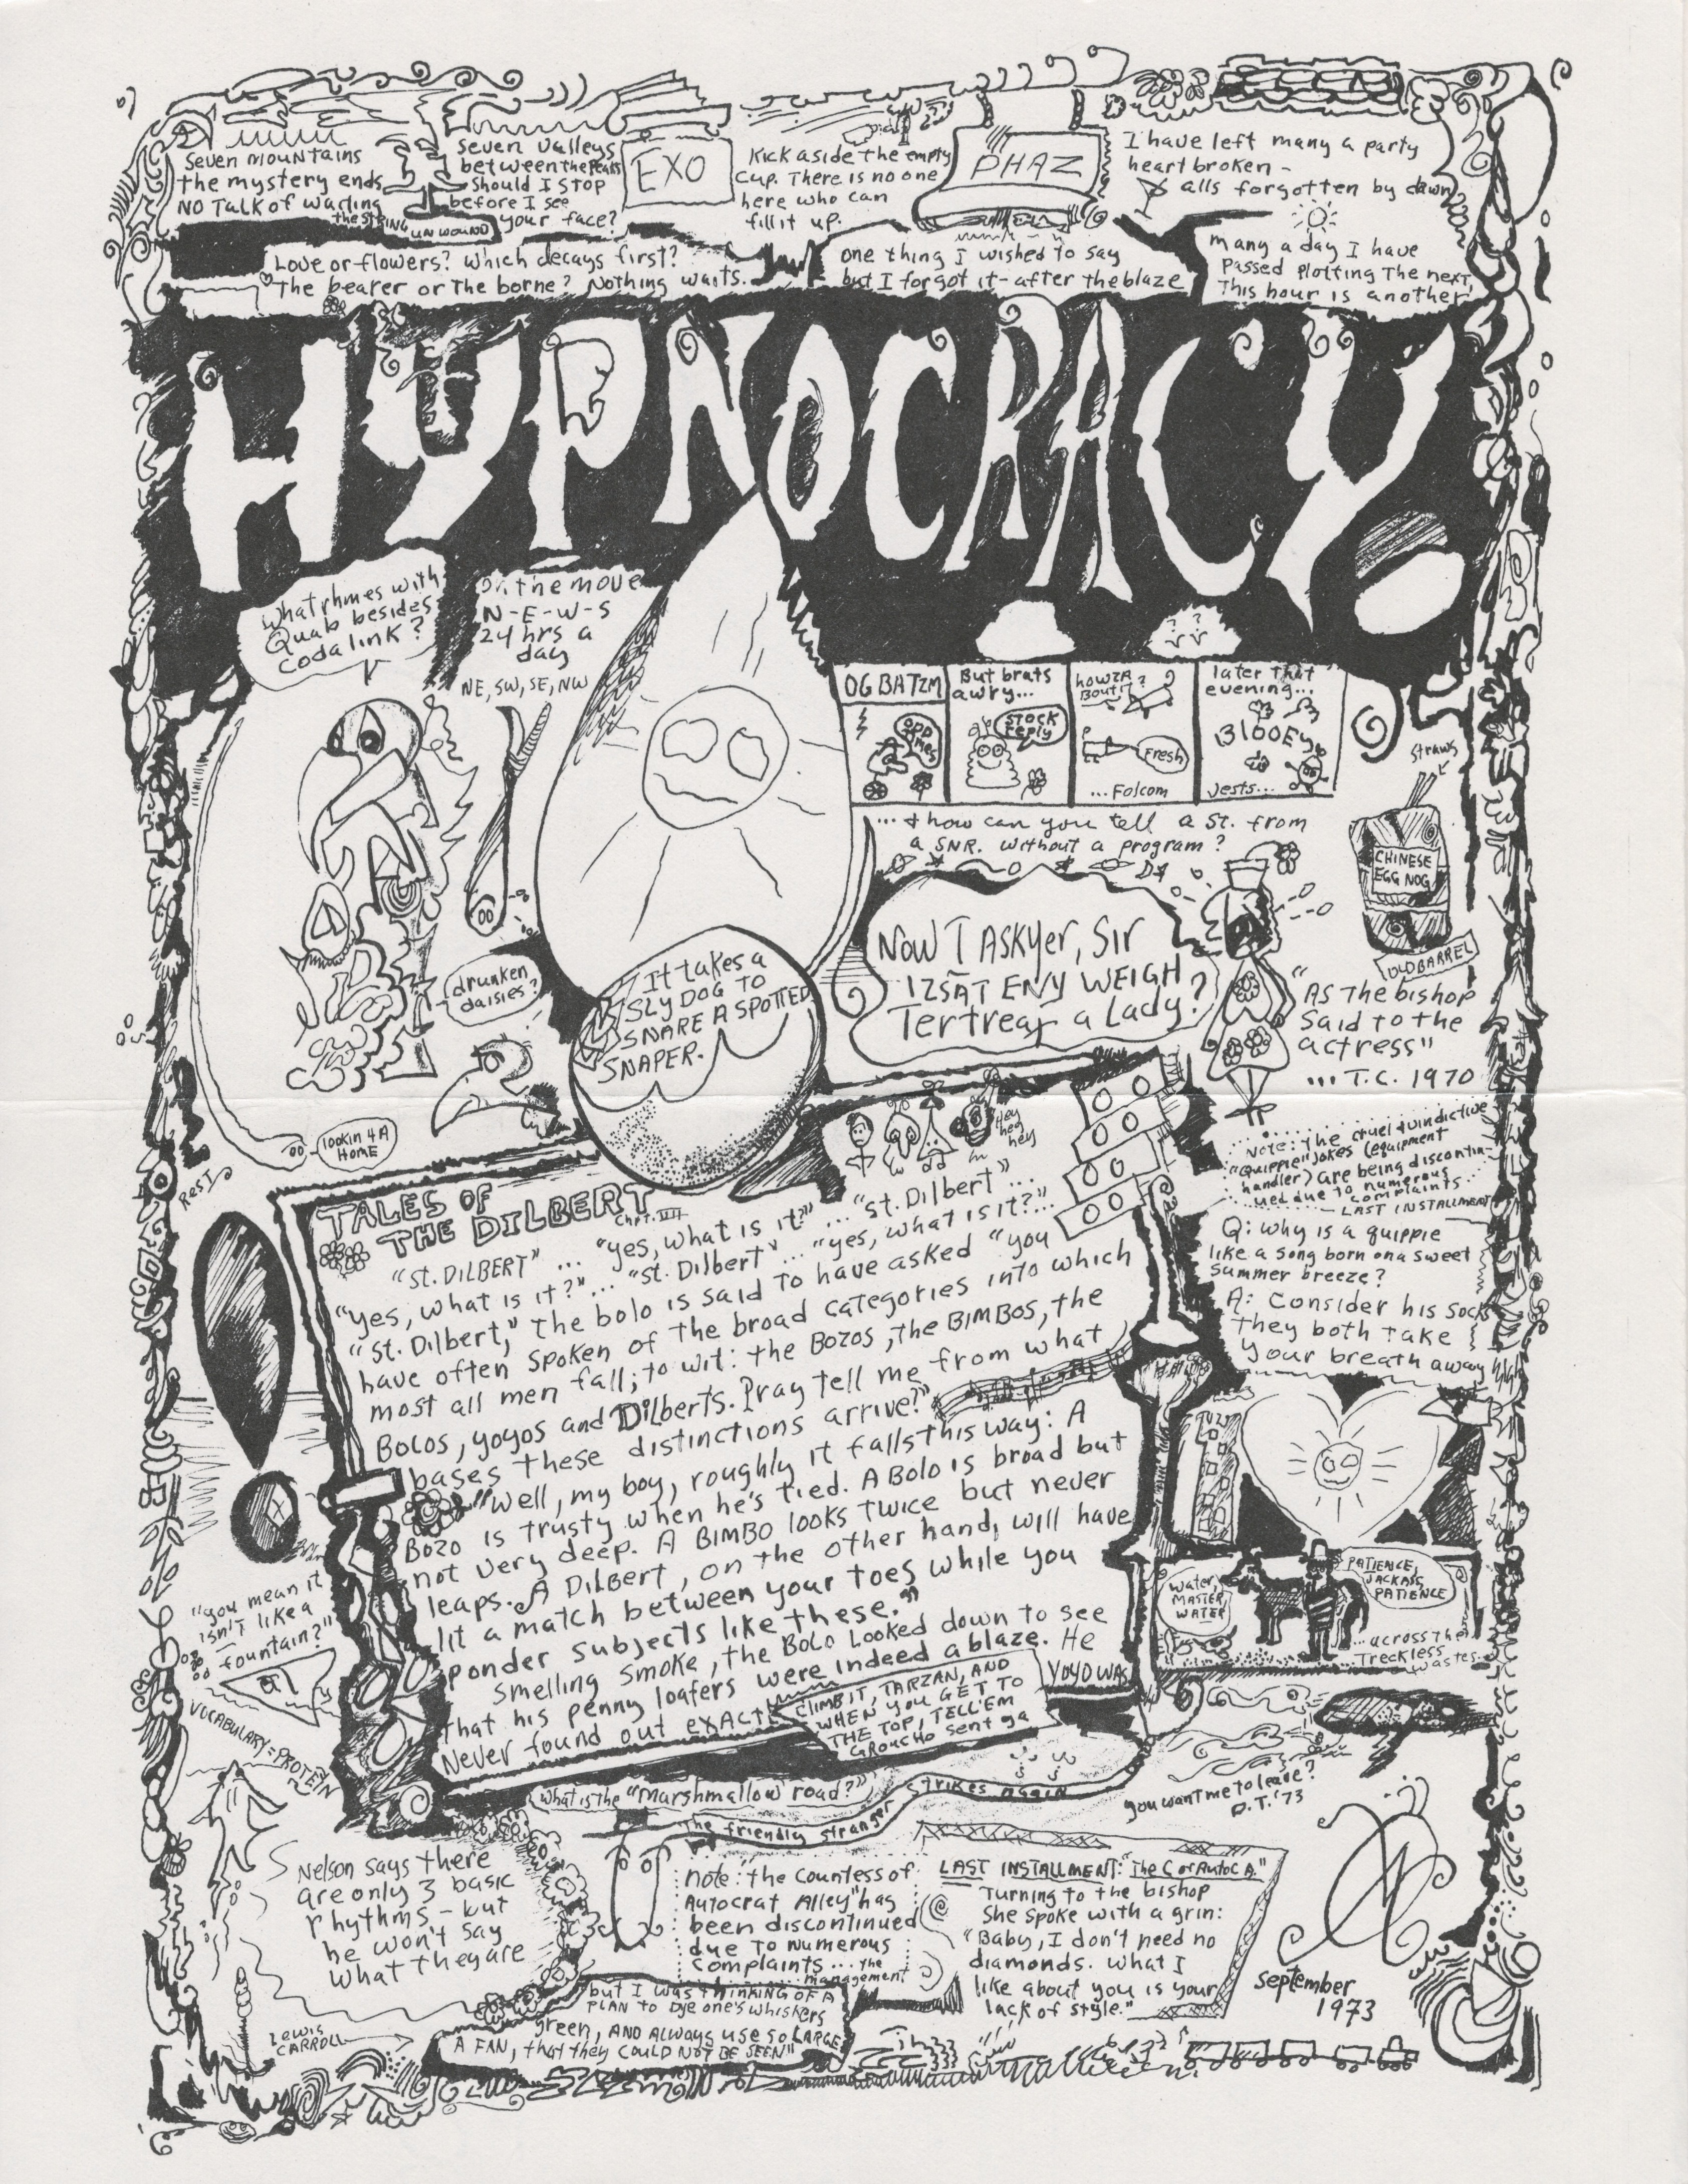 Seven mountains
the mystery ends
NO Talk of Waiting
the STRING unwound
seven valleys
between the peaks
Should I STOP
before I see
your face?
EXO
Kick aside the empty
Cup. There is no one
here who can
fill it up.
PHAZ
I have left many a party
heartbroken -
alls forgotten by dawn
Love or flowers? Which decays first?
The bearer or the borne? Nothing waits.
one thing I wished to say
but I forgot it - after the blaze
many a day I have
Passed Plotting The next,
This hour is another
HYPNOCRACY
What rhmes with
Quab besides
codalink?
on the move
N-E-W-S
24 hrs a
day
NE, SW, SE, NW
OG BATZM
OPP MES
But brats
awry...
STOCK
reply
howZA
Bout it?
Fresh
... Folcom
later that
evening...
BlooEy
Jests...
... & how can you tell a St. from
a SNR. without a program?
Straws
CHINESE
EGG NOG
OLD BARREL
drunken
daisies?
It takes a
SLY DOG TO
SNARE A SPOTTED
SNAPER.
NOW I ASKyer, Sir
IZSAT ENY WEIGH
Tertreat a Lady?
"As The bishop
Said to the
actress"
... T.C. 1970
lookin 4 A
HOME
ResT
hey
hey
hey
Note: the cruel & vindictive
"Quippie" jokes (equipment
handler) are being discontin-
ued due to numerous
complaints
- LAST INSTALLMENT
Q: Why is a quippie
like a song born on a sweet
summer breeze?
A: Consider his socks
They both take
your breath away
TALES OF
THE DILBERT
Chpt. VIII
"ST. DILBERT" ... "yes, what is it?" ... "st. Dilbert" ...
"yes, what is it?" ... "st. Dilbert" ... "yes, what is it?"
"St. Dilbert," the bolo is said to have asked "you
have often spoken of the broad categories into which
most all men fall; to wit: the Bozos, the BIMBOS, the
Bolos, yoyos and Dilberts. Pray tell me from what
bases these distinctions arrive?"
"Well, my boy, roughly it falls this way: A
Bozo is trusty when he's tied. A Bolo is broad but
not very deep. A BIMBO looks twice but never
leaps. A Dilbert, on the other hand, will have
lit a match between your toes while you
ponder subjects like these."
Smelling smoke, the Bolo looked down to see
that his penny loafers were indeed ablaze. He
Never found out exact
CLIMB IT, TARZAN, AND
WHEN YOU GET TO
THE TOP, TELL 'EM
GROUCHO sent ya
YOYO WAS
Water,
MASTER,
WATER
PATIENCE,
JACKASS,
PATIENCE
... across the
Treckless
wastes
"you mean it
isn't like a
fountain?"
VOCABULARY = PROTEIN
What is the "marshmallow road?"
The friendly stranger strikes again
you want me to leave?
D.T. '73
Nelson says there
are only 3 basic
rhythms - but
he won't say
what they are
note: "the Countess of
Autocrat Alley" has
been discontinued
due to numerous
complaints ... the
management
LAST INSTALLMENT: "The C of Auto C A."
Turning to the bishop
She spoke with a grin:
"Baby, I don't need no
diamonds. What I
like about you is your
lack of style."
September
1973
LEWIS
CARROLL
but I was thinking OF A
PLAN to Dye one's whiskers
green, AND ALWAYS use so LARGE
A FAN, that they COULD NOT BE SEEN"